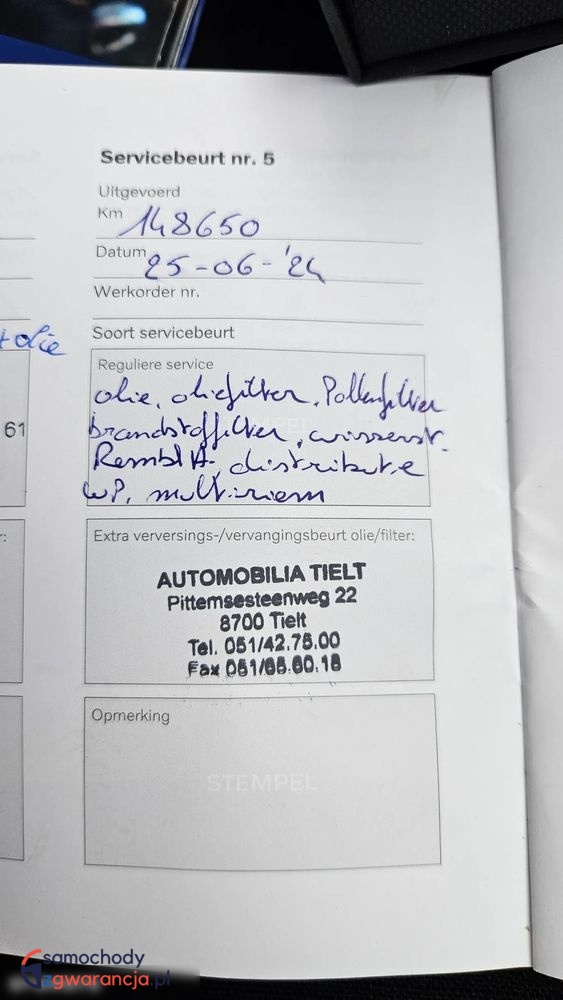 Servicebeurt nr. 5
Uitgevoerd
Km 148650
Datum 25-06-'24
Werkorder nr.
Soort servicebeurt
+ olie
Reguliere service
olie, oliefilter, Pollenfilter
brandstoffilter, wisserst.
61
RemblA, distributie
WP, multiriem
r:
Extra verversings-/vervangingsbeurt olie/filter:
AUTOMOBILIA TIELT
Pittemsesteenweg 22
8700 Tielt
Tel. 051/42.75.00
Fax 051/65.60.18
Opmerking
STEMPEL
samochody
zgwarancja.pl